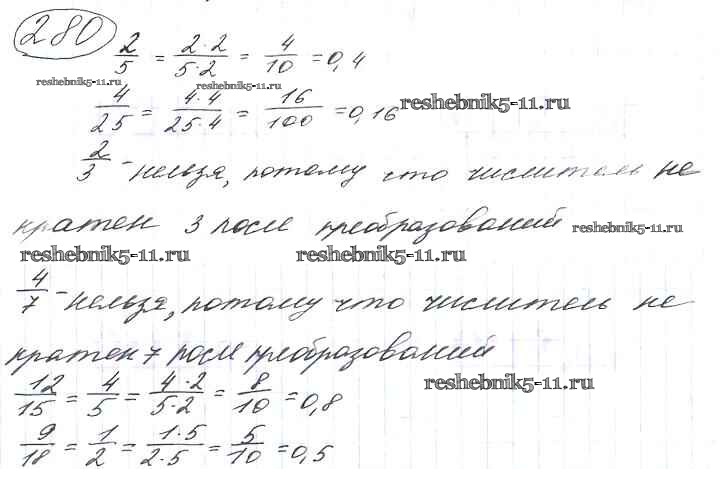 280
2/5 = 2·2/5·2 = 4/10 = 0,4
reshebnik5-11.ru reshebnik5-11.ru
4/25 = 4·4/25·4 = 16/100 = 0,16 reshebnik5-11.ru
2/3 - нельзя, потому что числитель не
кратен 3 после преобразований reshebnik5-11.ru
reshebnik5-11.ru reshebnik5-11.ru
4/7 - нельзя, потому что числитель не
кратен 7 после преобразований
12/15 = 4/5 = 4·2/5·2 = 8/10 = 0,8 reshebnik5-11.ru
9/18 = 1/2 = 1·5/2·5 = 5/10 = 0,5